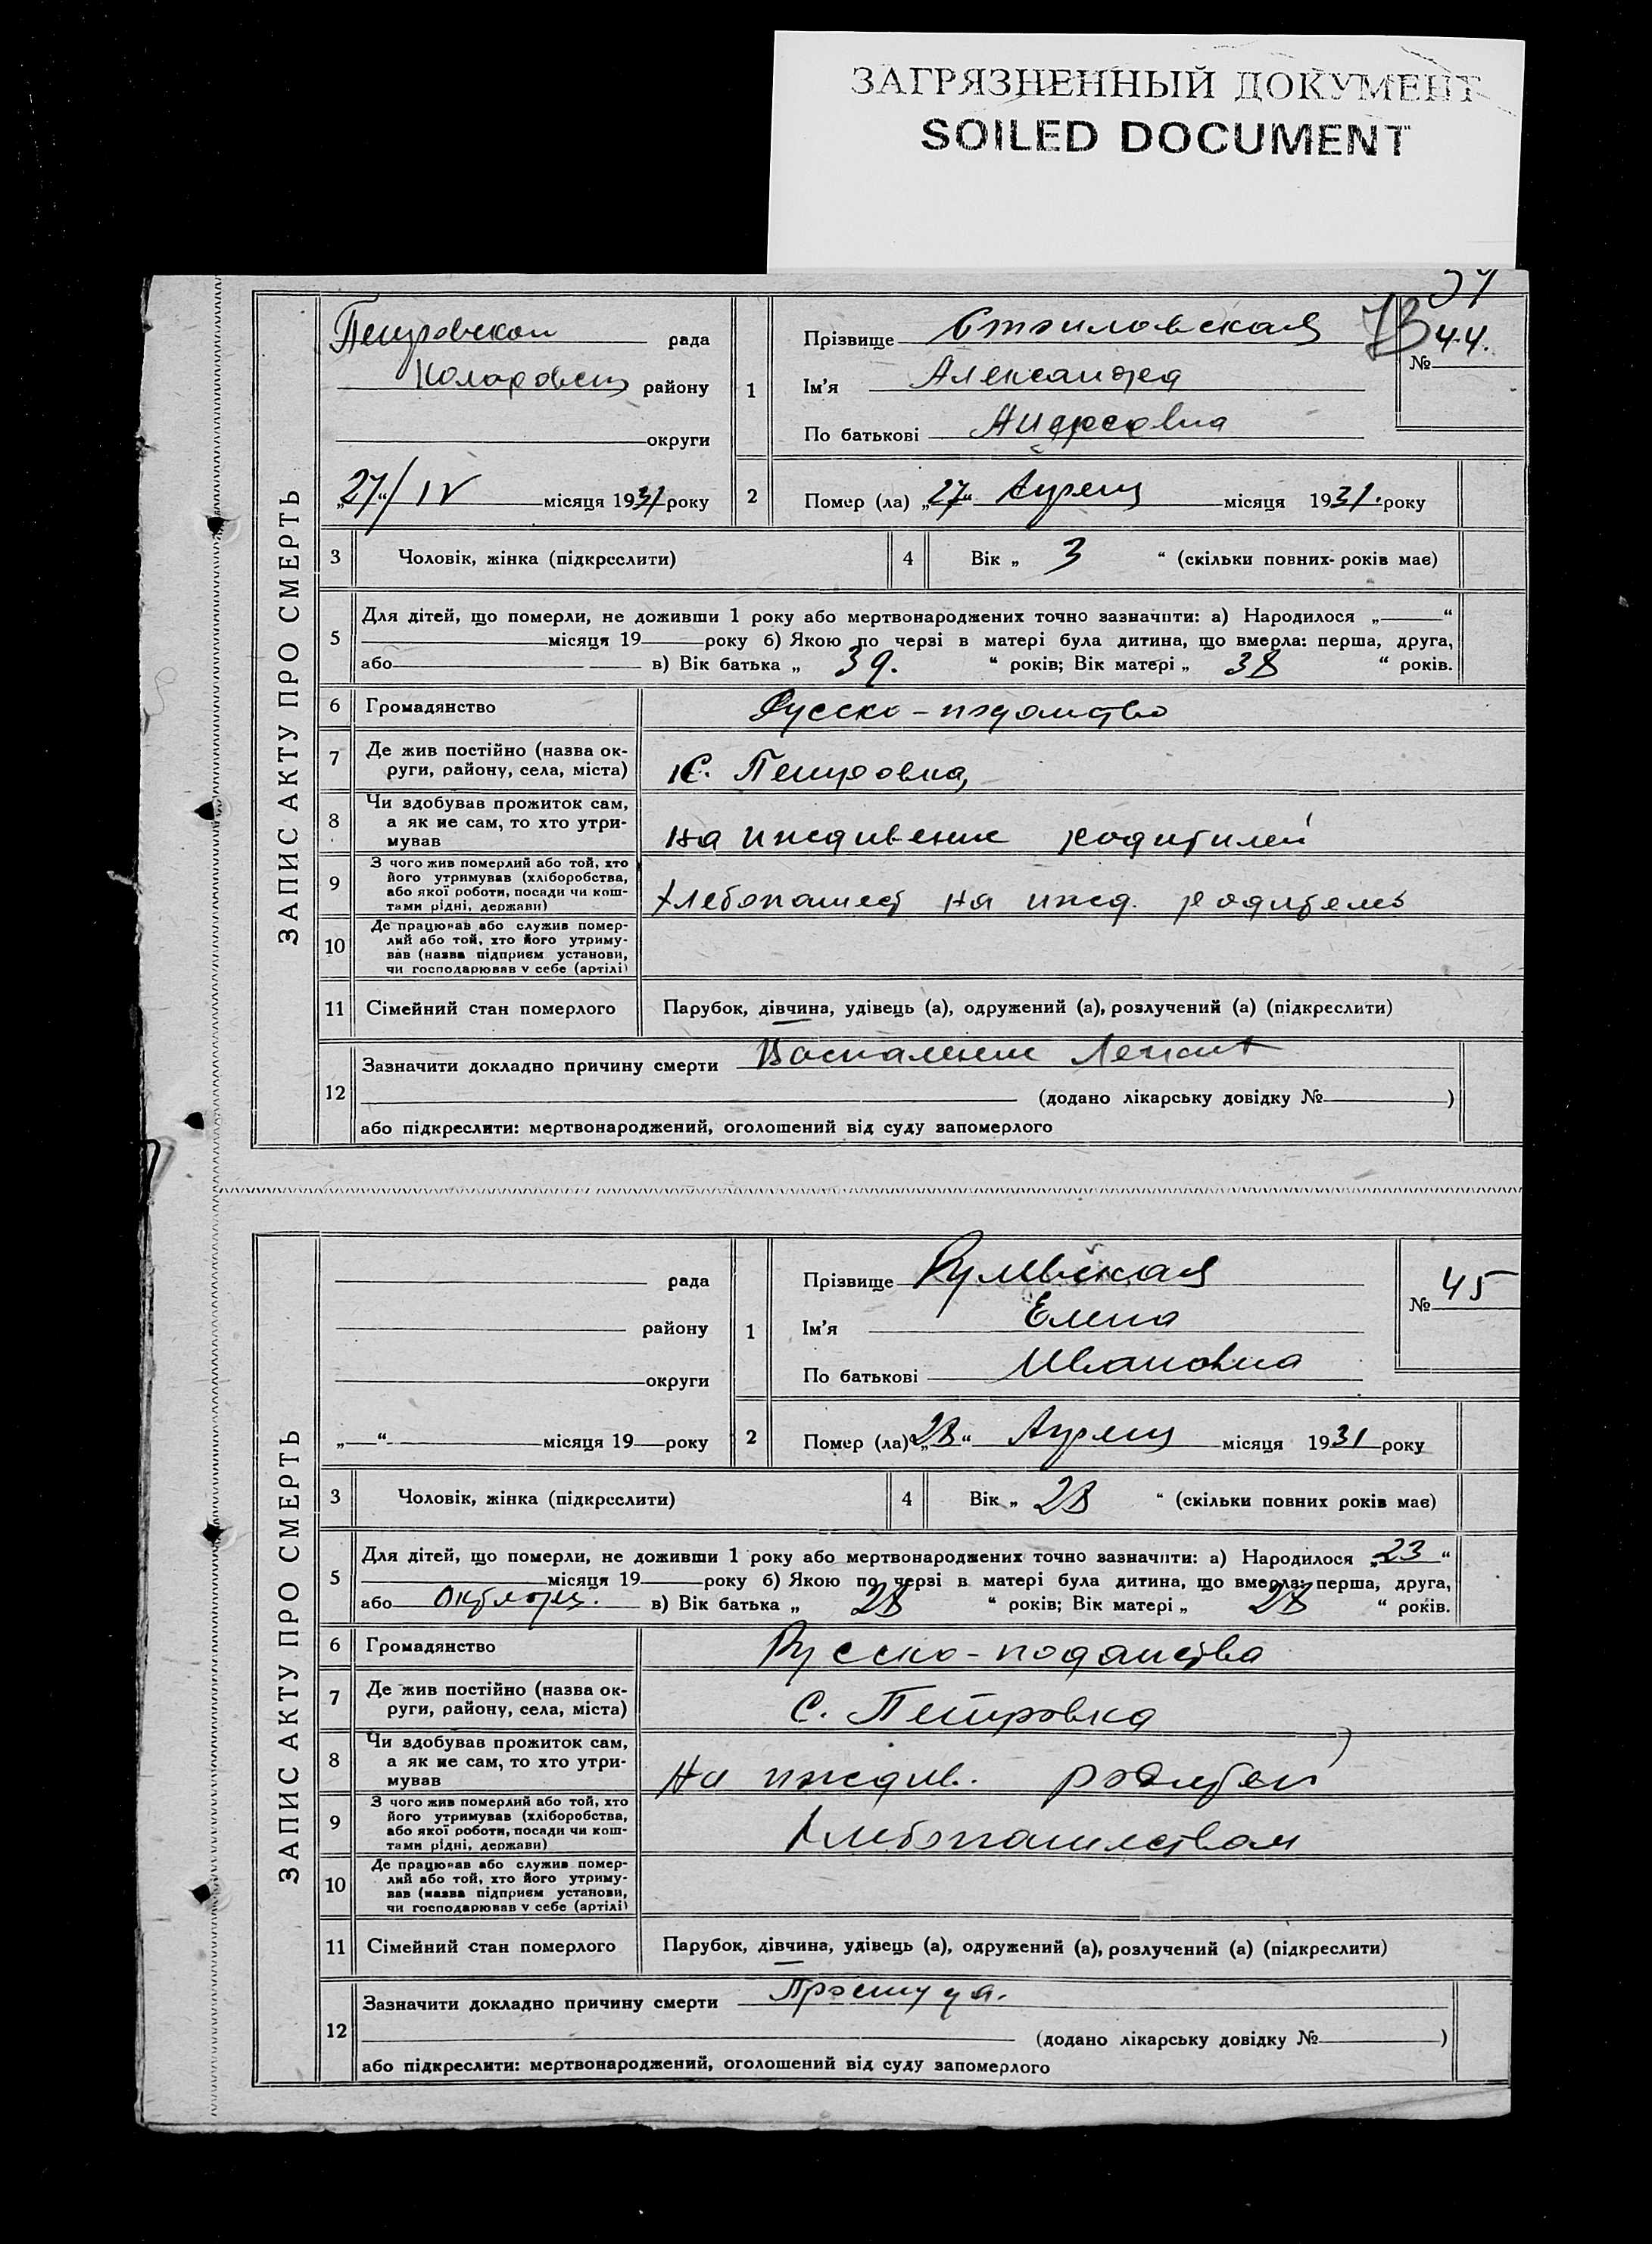 ЗАГРЯЗНЕННЫЙ ДОКУМЕНТ
SOILED DOCUMENT
ЗАПИС АКТУ ПРО СМЕРТЬ
Петровской рада
району
округи
„27“/IV місяця 1931 року
1
Прізвище
Ім’я Александра
По батькові
№ 44.
2
Помер (ла) „27“ Апреля місяця 1931. року
3 Чоловік, жінка (підкреслити)
4 Вік „ 3 “ (скільки повних років має)
5
Для дітей, що померли, не доживши 1 року або мертвонароджених точно зазначити: а) Народилося „ “
місяця 19 року б) Якою по черзі в матері була дитина, що вмерла: перша, друга,
або в) Вік батька „ 39. “ років; Вік матері „ 38 “ років.
6 Громадянство Русско-подонство
7
Де жив постійно (назва ок-
руги, району, села, міста) С. Петровка,
8
Чи здобував прожиток сам,
а як не сам, то хто утри-
мував на иждивение родителей
9
З чого жив померлий або той, хто
його утримував (хліборобства,
або якої роботи, посади чи кош-
тами рідні, держави) на ижд.
10
Де працював або служив помер-
лий або той, хто його утриму-
вав (назва підприєм установи,
чи господарював у себе (артілі)
11 Сімейний стан померлого Парубок, дівчина, удівець (а), одружений (а), розлучений (а) (підкреслити)
12
Зазначити докладно причину смерти Воспаление
(додано лікарську довідку № )
або підкреслити: мертвонароджений, оголошений від суду запомерлого
ЗАПИС АКТУ ПРО СМЕРТЬ
рада
району
округи
„ “ місяця 19 року
1
Прізвище
Ім’я Елена
По батькові Ивановна
№ 45
2
Помер (ла) „28“ Апреля місяця 1931 року
3 Чоловік, жінка (підкреслити)
4 Вік „ 28 “ (скільки повних років має)
5
Для дітей, що померли, не доживши 1 року або мертвонароджених точно зазначити: а) Народилося „23“
місяця 19 року б) Якою по черзі в матері була дитина, що вмерла: перша, друга,
або Октября. в) Вік батька „ 28 “ років; Вік матері „ 28 “ років.
6 Громадянство Русско-поданства
7
Де жив постійно (назва ок-
руги, району, села, міста) С. Петровка
8
Чи здобував прожиток сам,
а як не сам, то хто утри-
мував На иждив.
9
З чого жив померлий або той, хто
його утримував (хліборобства,
або якої роботи, посади чи кош-
тами рідні, держави) Хлебопашеством
10
Де працював або служив помер-
лий або той, хто його утриму-
вав (назва підприєм установи,
чи господарював у себе (артілі)
11 Сімейний стан померлого Парубок, дівчина, удівець (а), одружений (а), розлучений (а) (підкреслити)
12
Зазначити докладно причину смерти Простуда.
(додано лікарську довідку № )
або підкреслити: мертвонароджений, оголошений від суду запомерлого